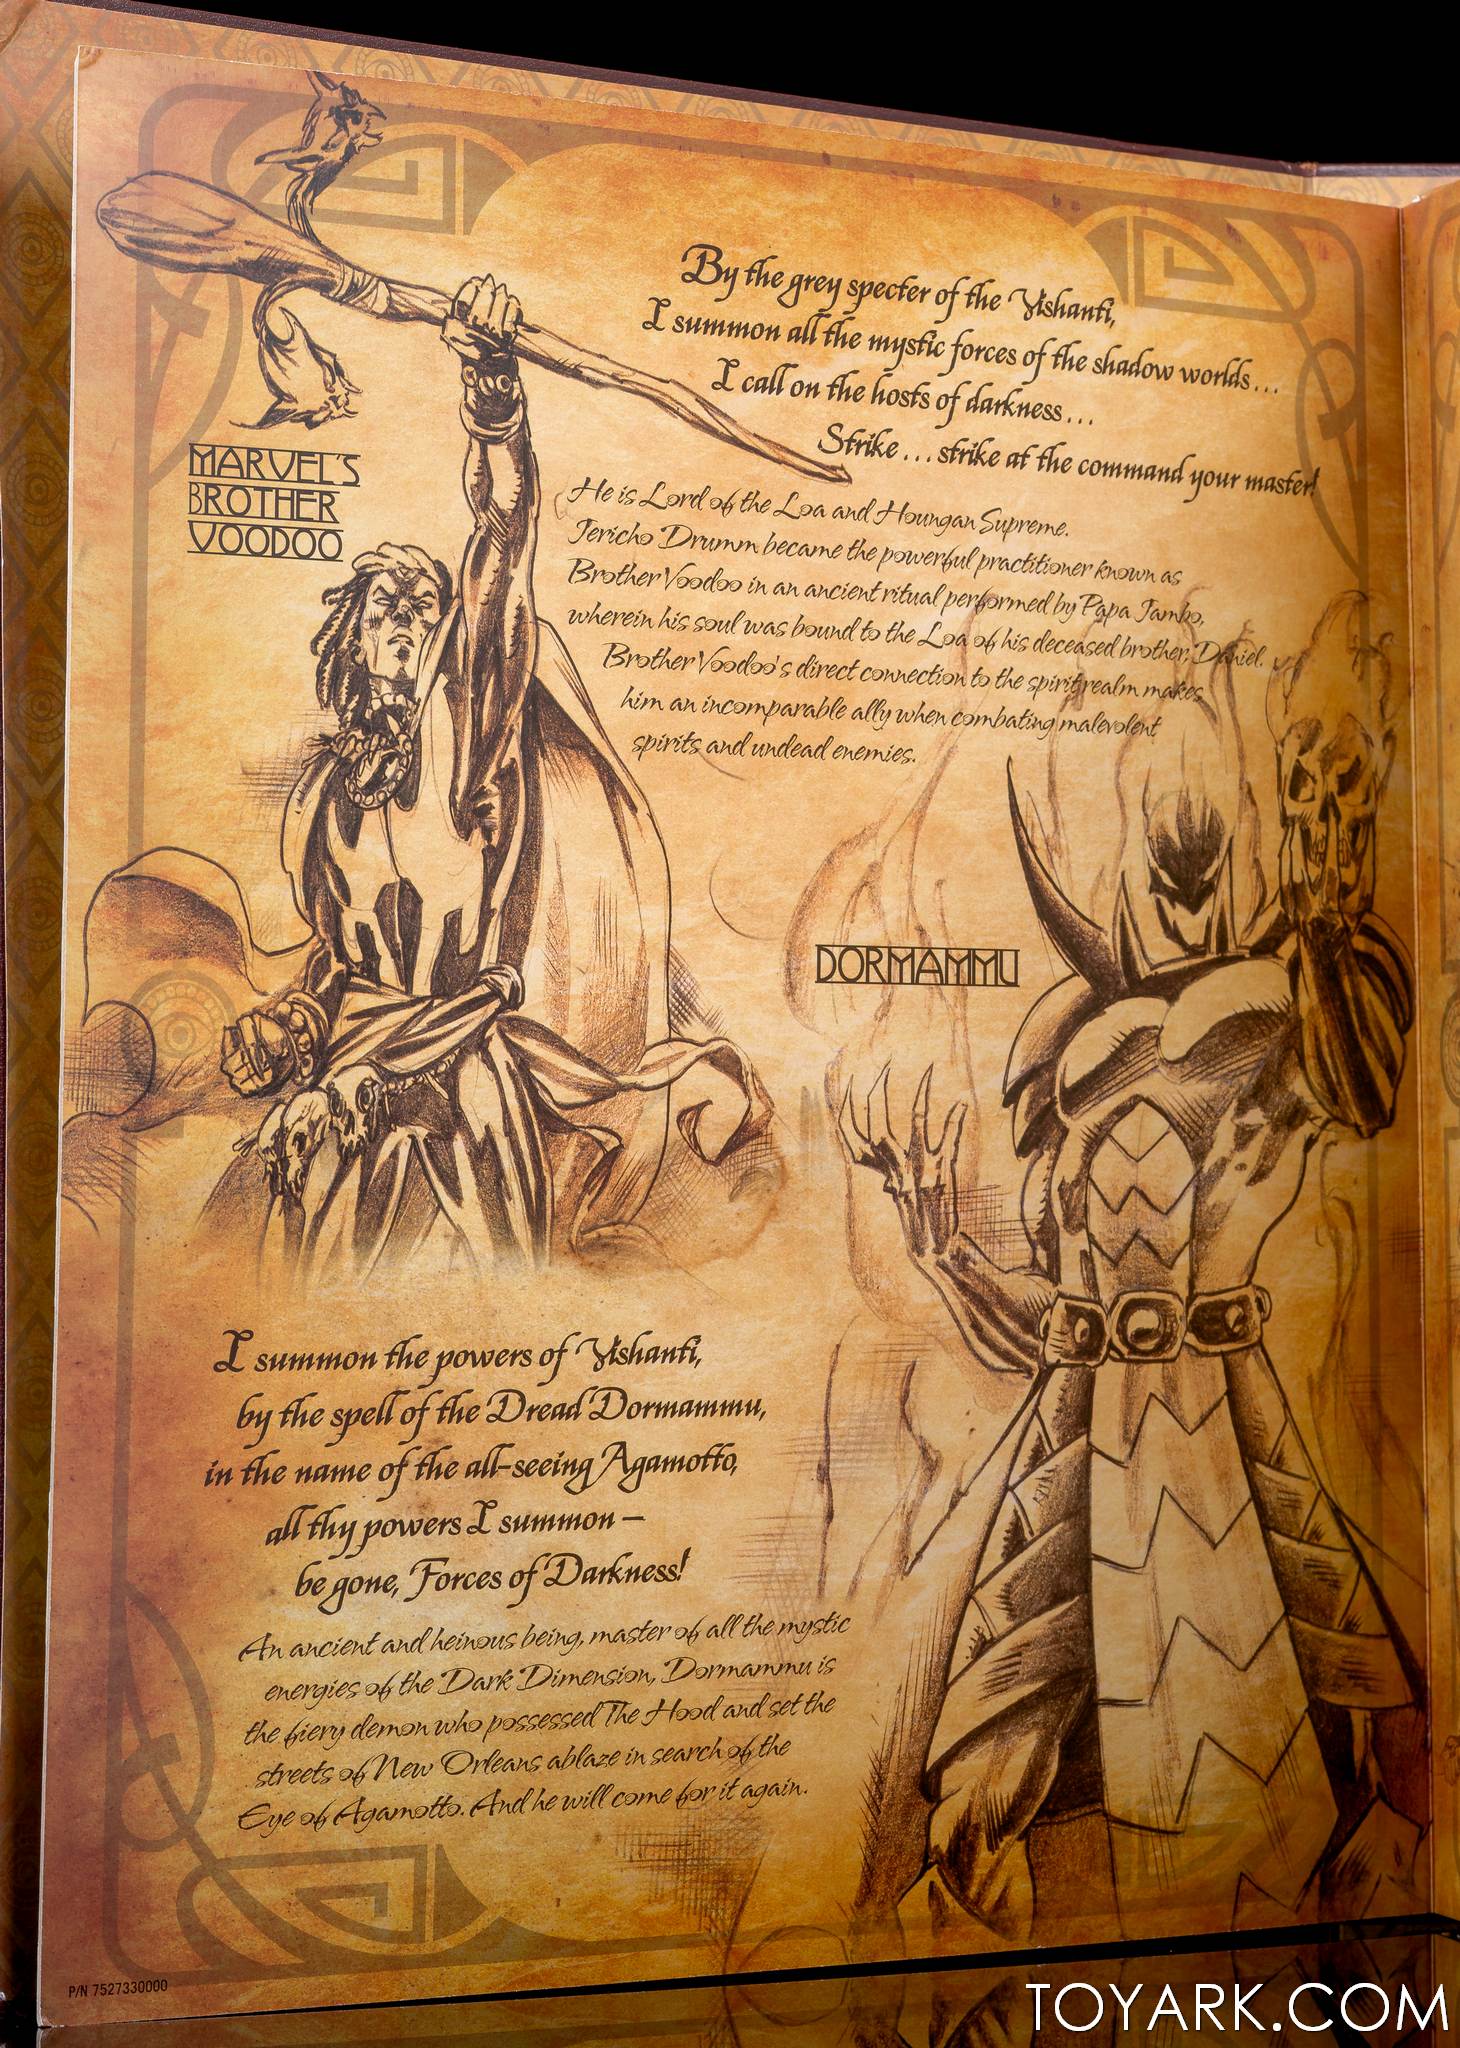 By the grey specter of the Vishanti,
I summon all the mystic forces of the shadow worlds...
I call on the hosts of darkness...
Strike... strike at the command your master!
MARVEL'S
BROTHER
VOODOO
He is Lord of the Loa and Houngan Supreme.
Jericho Drumm became the powerful practitioner known as
Brother Voodoo in an ancient ritual performed by Papa Jambo,
wherein his soul was bound to the Loa of his deceased brother, Daniel.
Brother Voodoo's direct connection to the spirit realm makes
him an incomparable ally when combating malevolent
spirits and undead enemies.
DORMAMMU
I summon the powers of Vishanti,
by the spell of the Dread Dormammu,
in the name of the all-seeing Agamotto,
all thy powers I summon –
be gone, Forces of Darkness!
An ancient and heinous being, master of all the mystic
energies of the Dark Dimension, Dormammu is
the fiery demon who possessed The Hood and set the
streets of New Orleans ablaze in search of the
Eye of Agamotto. And he will come for it again.
P/N 7527330000
TOYARK.COM